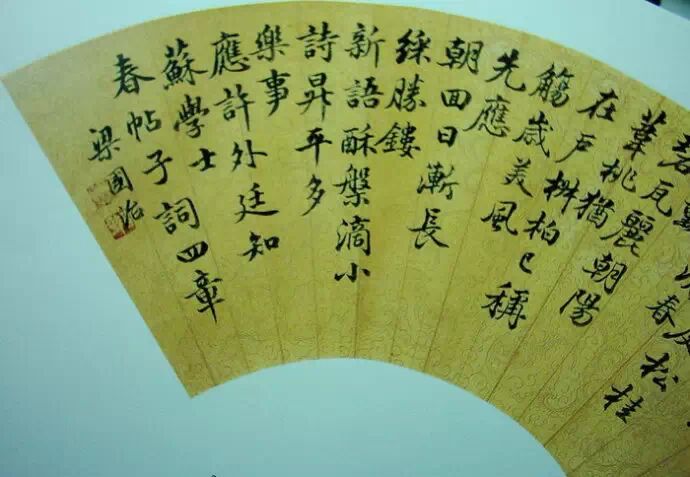 松桂
碧瓦麗朝陽
葦桃猶
在戶椒柏已稱
觴歲美風
先應
朝回日漸長
綵勝鏤
新語酥盤滴小
詩昇平多
樂事
應許外廷知
蘇學士
春帖子詞四章
梁國治